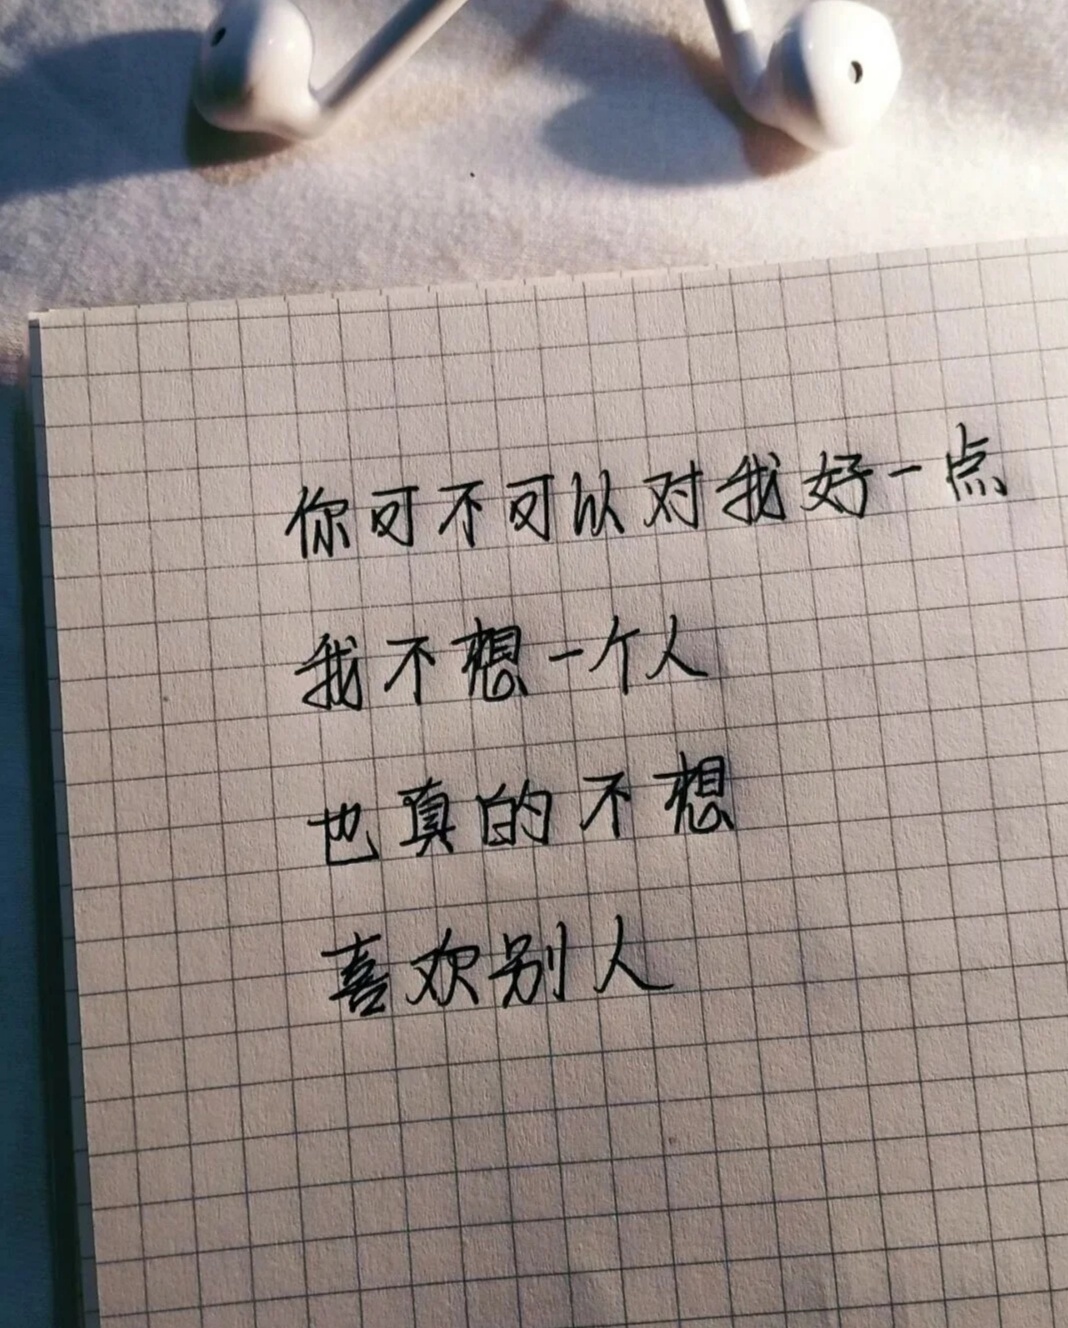 你可不可以对我好一点
我不想一个人
也真的不想
喜欢别人